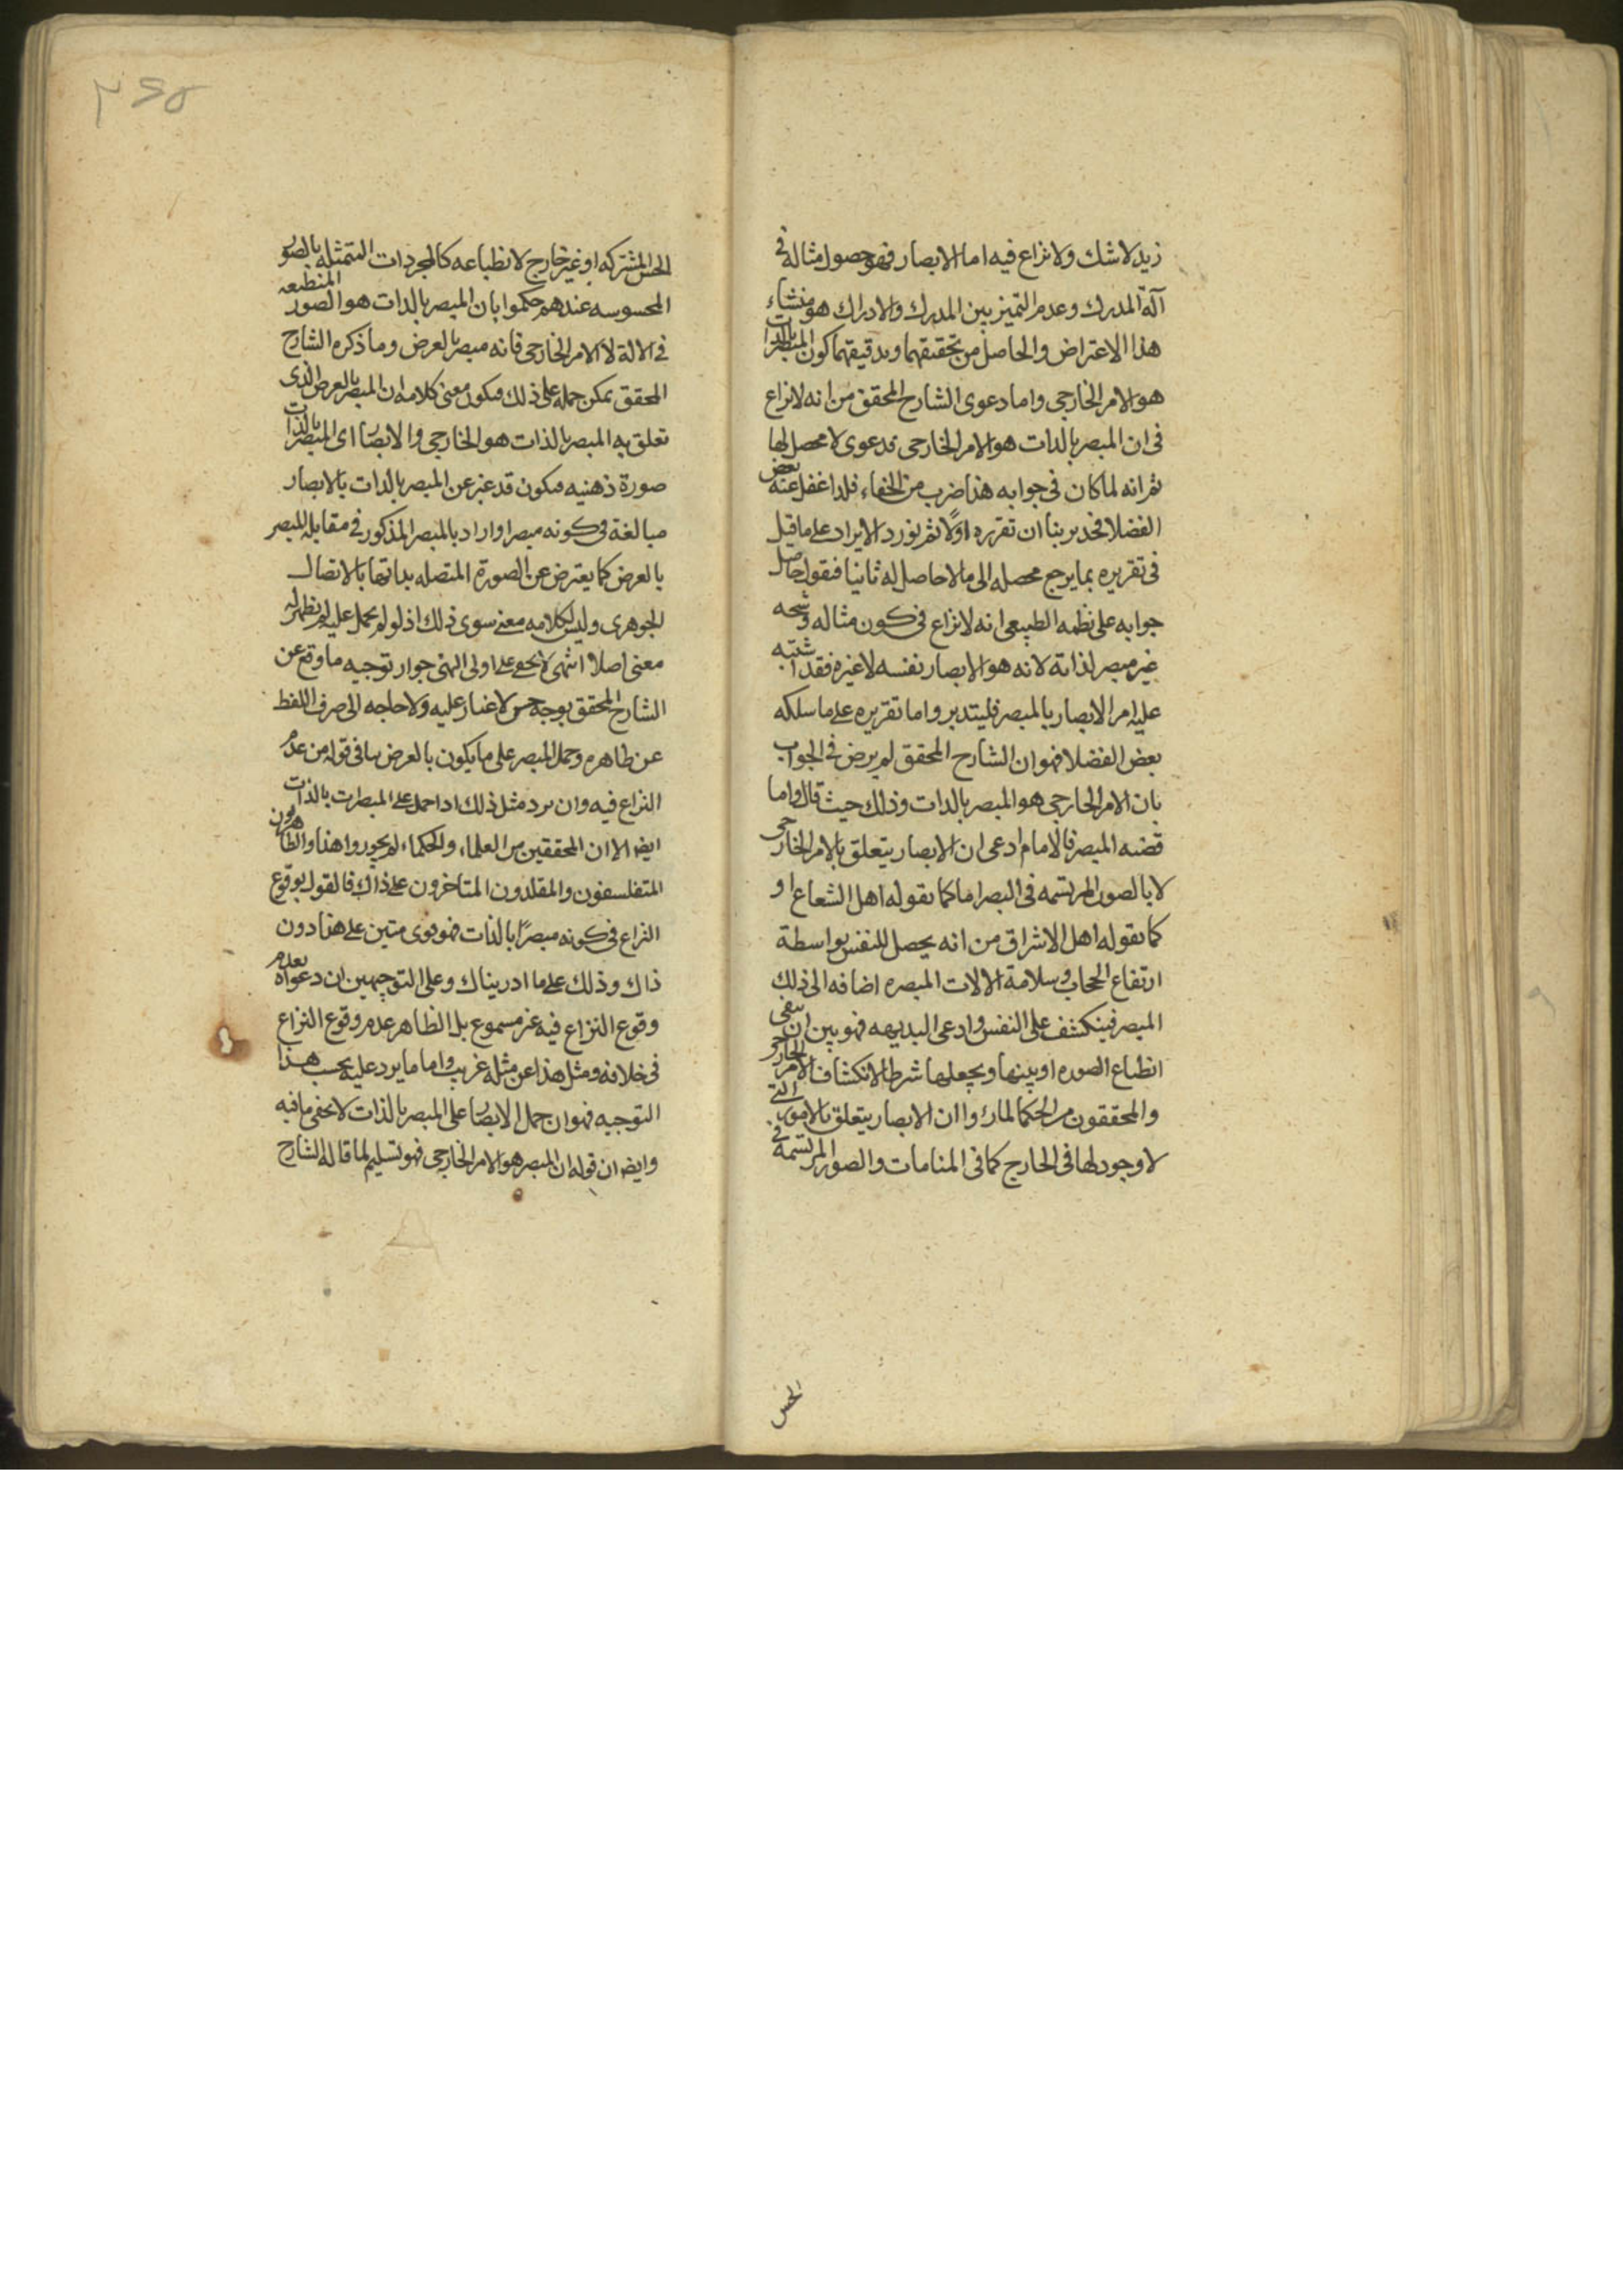 زيد لا شك ولا نزاع فيه اما الابصار فهو حصول مثاله في
آلة المدرك وعدم التميز بين المدرك والادراك هو منشاء
هذا الاعتراض والحاصل من تحقيقهما وتدقيقهما كون المبصر بالذات
هو الامر الخارجى واما دعوى الشارح المحقق من انه لا نزاع
فى ان المبصر بالذات هو الامر الخارجى فدعوى لا محصل لها
ثم انه لما كان فى جوابه هذا ضرب من الخفاء فلذا غفل عنه بعض
الفضلا فجدير بنا ان نقرره اولًا ثم نورد الايراد على ما قيل
فى تقريره بما يرجع محصله الى ما لا حاصل له ثانيا فنقول حاصل
جوابه على نظمه الطبيعى انه لا نزاع فى كون مثاله وشبحه
غير مبصر لذاته لانه هو الابصار نفسه لا غيره فقد اشتبه
عليه امر الابصار بالمبصر فليتدبر واما تقريره على ما سلكه
بعض الفضلا فهو ان الشارح المحقق لم يرض فى الجواب
بان الامر الخارجى هو المبصر بالذات وذلك حيث قال واما
قضيه المبصر فالامام ادعى ان الابصار يتعلق بالامر الخارجى
لا بالصور المرتسمه فى البصر اما كما يقوله اهل الشعاع او
كما يقوله اهل الاشراق من انه يحصل للنفس بواسطة
ارتفاع الحجاب وسلامة الالات المبصره اضافه الى ذلك
المبصر فينكشف على النفس وادعى البديهه فهو بين ان ينفى
انطباع الصوره او بينها ويجعلها شرطا لانكشاف الامر الخارجى
والمحققون من الحكما لما راوا ان الابصار يتعلق بالامور التى
لا وجود لها فى الخارج كما فى المنامات والصور المرتسمة فى
الحس
٣٤٥
الحس المشترك او غير خارج لانطباعه كالمجردات المتمثله بالصور
المحسوسه عندهم حكموا بان المبصر بالذات هو الصور المنطبعه
فى الالة لا الامر الخارجى فانه مبصر بالعرض وما ذكره الشارح
المحقق يمكن حمله على ذلك فيكون معنى كلامه ان المبصر بالعرض الذى
تعلق به المبصر بالذات هو الخارجى والابصار اى المبصر بالذات
صورة ذهنيه فيكون قد عبر عن المبصر بالذات بالابصار
مبالغة فى كونه مبصرا واراد بالمبصر المذكور فى مقابله المبصر
بالعرض كما يعترض عن الصورة المتصله بذاتها بالاتصال
الجوهرى وليس لكلامه معنى سوى ذلك اذ لو لم يحمل عليه لم يظهر له
معنى اصلا انتهى لا يخفى على اولى النهى جواز توجيه ما وقع عن
الشارح المحقق بوجه حسن لا غبار عليه ولا حاجه الى صرف اللفظ
عن ظاهره وحمل المبصر على ما يكون بالعرض ينافى قوله من عدم
النزاع فيه وان يرد مثل ذلك اذا حمل على المبصرات بالذات
ايضا الا ان المحققين من العلماء والحكماء لم يجوروا هذا والظاهريون
المتفلسفون والمقلدون المتاخرون على ذاك فالقول بوقوع
النزاع فى كونه مبصرًا بالذات فهو قوى متين على هذا دون
ذاك وذلك على ما ادريناك وعلى التوجيهين ان دعواه بعدم
وقوع النزاع فيه غير مسموع بل الظاهر عدم وقوع النزاع
فى خلافه ومثل هذا عن مثله غريب واما ما يرد عليه بحسب هذا
التوجيه فهو ان حمل الابصار على المبصر بالذات لا يخفى ما فيه
وايضا ان قوله ان المبصر هو الامر الخارجى فهو تسليم لما قاله الشارح